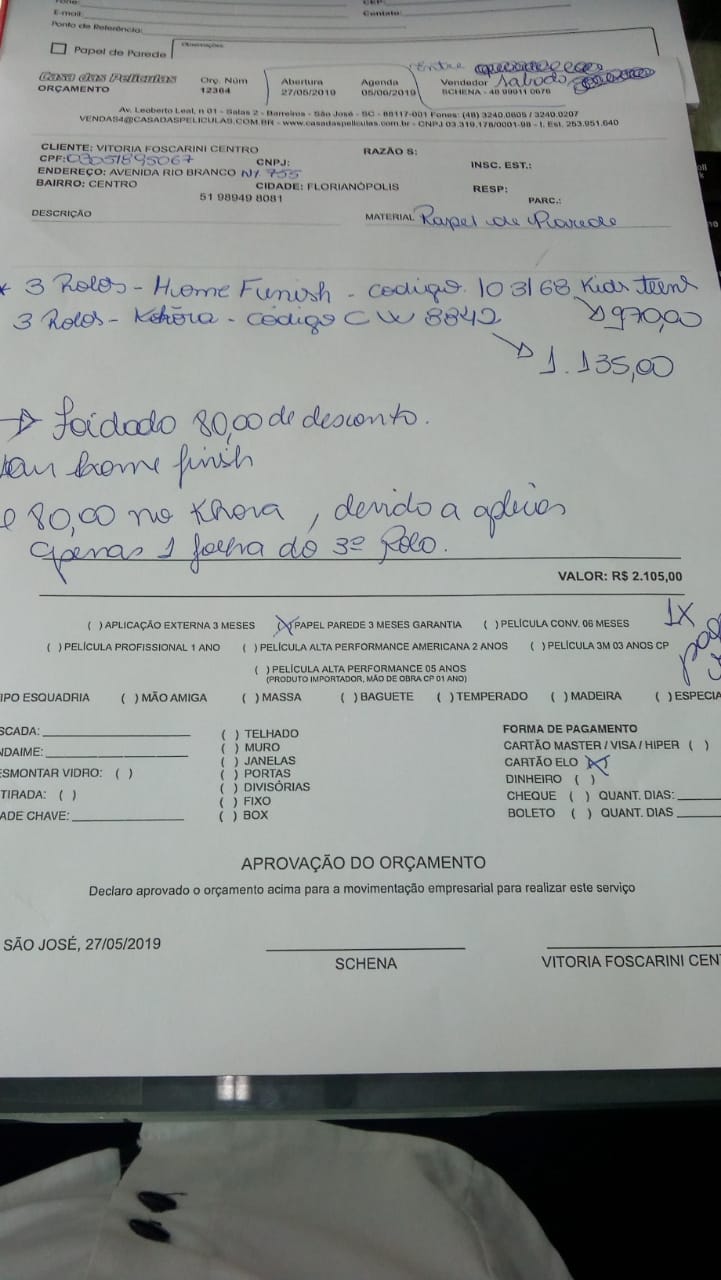 E-mail:
Contato:
Ponto de Referência:
Papel de Parede
Casa das Películas
ORÇAMENTO
Orç. Núm
12364
Abertura
27/05/2019
Agenda
05/06/2019
Entre
Vendedor Sabado
SCHENA - 48 99911 0676
Av. Leoberto Leal, n 01 - Salas 2 - Barreiros - São José - SC - 88117-001 Fones: (48) 3240.0605 / 3240.0207
VENDAS4@CASADASPELICULAS.COM.BR - www.casadaspeliculas.com.br - CNPJ 03.319.178/0001-98 - I. Est. 253.951.640
CLIENTE: VITORIA FOSCARINI CENTRO RAZÃO S:
CPF: 03051895067 CNPJ: INSC. EST.:
ENDEREÇO: AVENIDA RIO BRANCO Nº 755
BAIRRO: CENTRO CIDADE: FLORIANÓPOLIS RESP:
51 98949 8081 PARC.:
DESCRIÇÃO MATERIAL Papel de Parede
* 3 Rolos - Home Funish - codigo 103168 Kids teens
→ 970,00
3 Rolos - Kohora - código CW 8842
→ 1.135,00
→ Foi dado 80,00 de desconto.
home finish
e 80,00 no Khora, devido a
apenas 1 folha do 3º Rolo.
VALOR: R$ 2.105,00
( ) APLICAÇÃO EXTERNA 3 MESES (X) PAPEL PAREDE 3 MESES GARANTIA ( ) PELÍCULA CONV. 06 MESES 1X
( ) PELÍCULA PROFISSIONAL 1 ANO ( ) PELÍCULA ALTA PERFORMANCE AMERICANA 2 ANOS ( ) PELÍCULA 3M 03 ANOS CP
( ) PELÍCULA ALTA PERFORMANCE 05 ANOS
(PRODUTO IMPORTADOR, MÃO DE OBRA CP 01 ANO)
IPO ESQUADRIA ( ) MÃO AMIGA ( ) MASSA ( ) BAGUETE ( ) TEMPERADO ( ) MADEIRA ( ) ESPECIA
SCADA:
NDAIME:
ESMONTAR VIDRO: ( )
TIRADA: ( )
ADE CHAVE:
( ) TELHADO
( ) MURO
( ) JANELAS
( ) PORTAS
( ) DIVISÓRIAS
( ) FIXO
( ) BOX
FORMA DE PAGAMENTO
CARTÃO MASTER / VISA / HIPER ( )
CARTÃO ELO (X)
DINHEIRO ( )
CHEQUE ( ) QUANT. DIAS:
BOLETO ( ) QUANT. DIAS
APROVAÇÃO DO ORÇAMENTO
Declaro aprovado o orçamento acima para a movimentação empresarial para realizar este serviço
SÃO JOSÉ, 27/05/2019
SCHENA
VITORIA FOSCARINI CEN